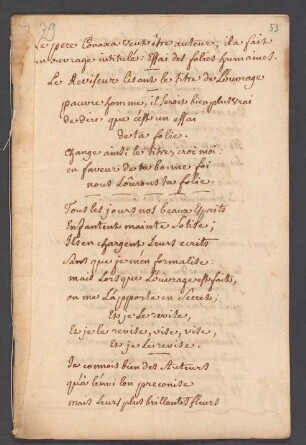 39
53
Le pere Conaxa veut être auteur; il a fait
un ouvrage intitulé: Essai des folies humaines.
Le Reviseur Lisant le titre de L'ouvrage
pauvre homme, il seroit bien plus vrai
de dire: que c'est un essai
de ta folie.
Change ainsi le titre, croi moi:
en faveur de ta bonne foi
nous Loûrons ta folie.
Tous les jours nos beaux Esprits
Enfantent mainte Sotise;
Ils en chargent Leurs écrits
Sans que je m'en formalise:
mais Lors que L'ouvrage est fait,
on me L'apporte en Secret;
Et je Le revise,
Et je Le revise, vise, vise,
Et je Le revise.
Je connois bien des Auteurs
qu'à L'envi L'on preconise
mais Leurs plus brillantes fleurs